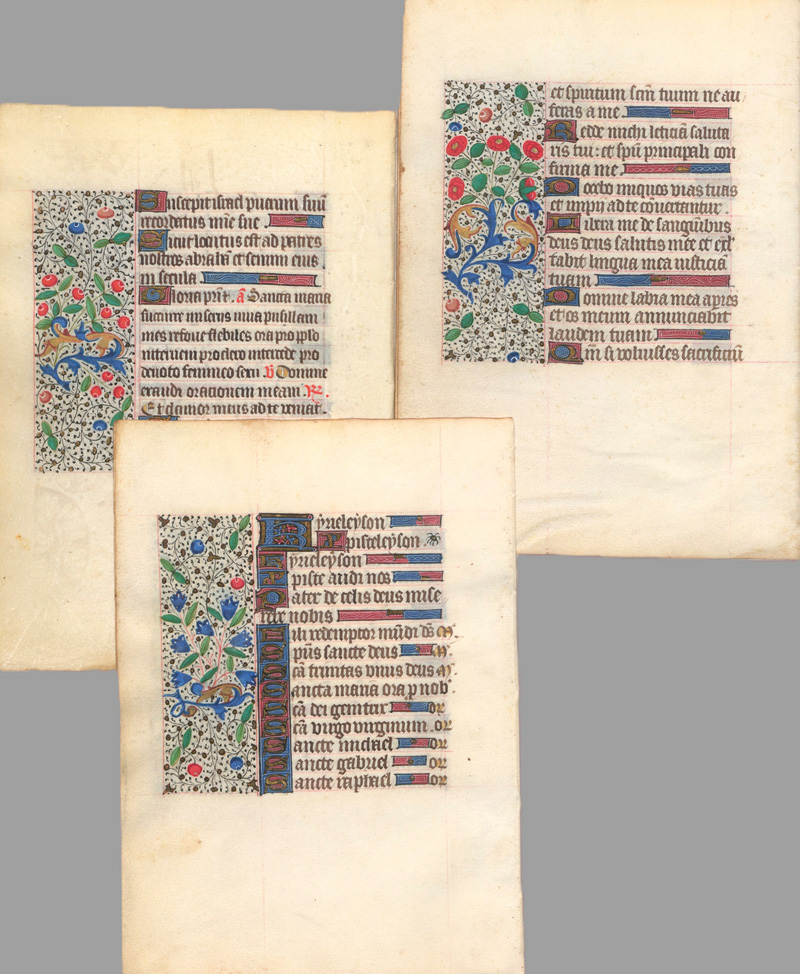 Suscepit israel puerum suū
recordatus mīe sue.
Sicut locutus est ad patres
nostros abrahā et semini eius
in secula
Gloria prīt. ā Sancta maria
succurre miseris iuua pusillani
mes refoue flebiles ora pro p̄plo
interueni pro clero intercede pro
deuoto femineo sexu. ℣ Domine
exaudi orationem meam. ℟.
Et clamor meus ad te veniat.
et spiritum scm̄ tuum ne au
feras a me.
Redde michi leticiā saluta
ris tui: et spū principali con
firma me.
Docebo iniquos vias tuas
et impii ad te cōuertantur.
Libera me de sanguinibus
deus deus salutis mee et exl
tabit lingua mea iusticiā
tuam
Domine labia mea apries
et os meum annunciabit
laudem tuam
Qm̄ si voluisses sacrificiū
Kyrieleyson
Xpisteleyson
Kyrieleyson
Xpiste audi nos
Pater de celis deus mise
rere nobis
Fili redemptor mūdi ds̄ M.
Spūs sancte deus M.
Scā trinitas vnus deus M.
Sancta maria ora p nob'
Scā dei genitrix or
Scā virgo virginum or
Sancte michael or
Sancte gabriel or
Sancte raphael or